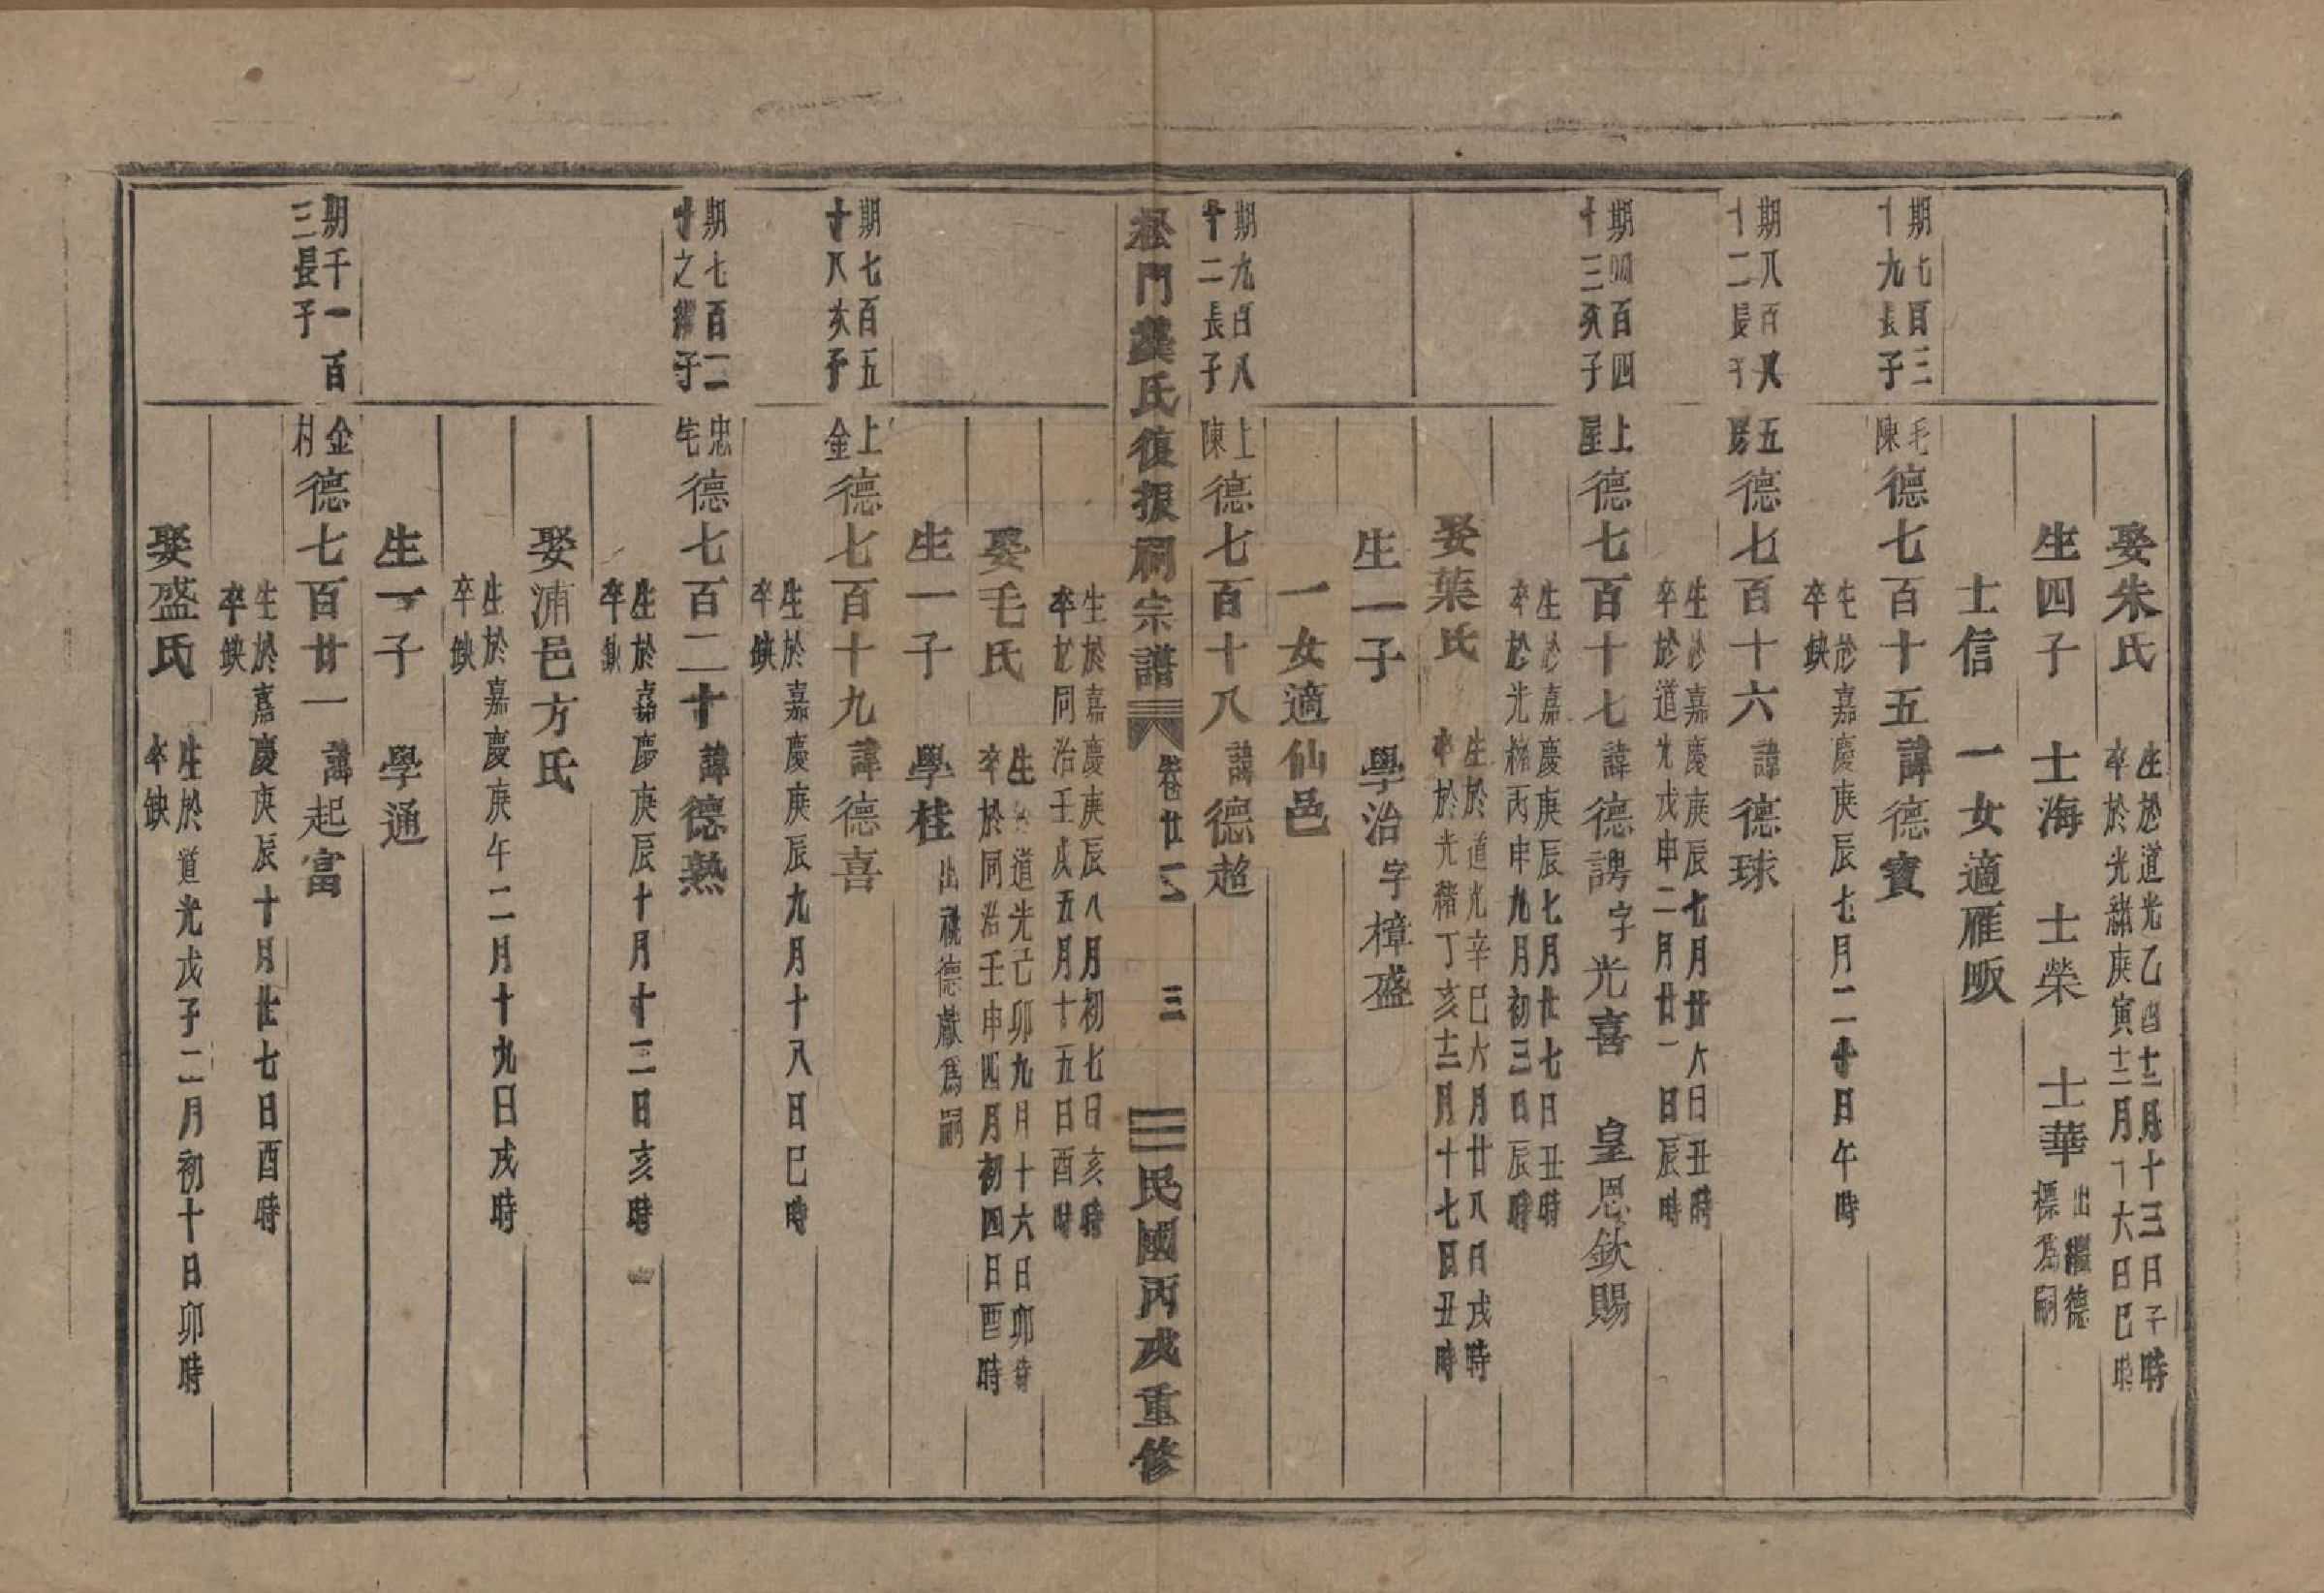 娶朱氏 生於道光乙酉十二月十三日子時
卒於光緒庚寅十二月十六日巳時
生四子 士海 士榮 士華 出繼德
標為嗣
士信 一女適雁畈
期七百三
十九長子
毛
陳
德七百十五 諱德寶
生於嘉慶庚辰七月二十日午時
卒缺
期八百八
十二長子
五
房
德七百十六 諱德球
生於嘉慶庚辰七月廿六日丑時
卒於道光戊申二月廿一日辰時
期四百四
十三次子
上
屋
德七百十七 諱德 字光喜 皇恩欽賜
生於嘉慶庚辰七月廿七日丑時
卒於光緒丙申九月初三日辰時
娶葉氏 生於道光辛巳六月廿八日戌時
卒於光緒丁亥十二月十七日丑時
生一子 學治 字樟盛
一女適仙邑
期九百八
十二長子
上
陳
德七百十八 諱德超
松門龔氏復振祠宗譜 卷廿一 三 民國丙戌重修
生於嘉慶庚辰八月初七日亥時
卒於同治壬戌五月十五日酉時
娶毛氏 生於道光己卯九月十六日卯時
卒於同治壬申四月初四日酉時
生一子 學桂 出祧德獻為嗣
期七百五
十八次子
上
金
德七百十九 諱德喜
生於嘉慶庚辰九月十八日巳時
卒缺
期七百二
十之繼子
忠
宅
德七百二十 諱德熟
生於嘉慶庚辰十月十二日亥時
卒缺
娶浦邑方氏
生於嘉慶庚午二月十九日戌時
卒缺
生一子 學通
期千一百
三長子
金
村
德七百廿一 諱起富
生於嘉慶庚辰十月廿七日酉時
卒缺
娶盛氏 生於道光戊子二月初十日卯時
卒缺